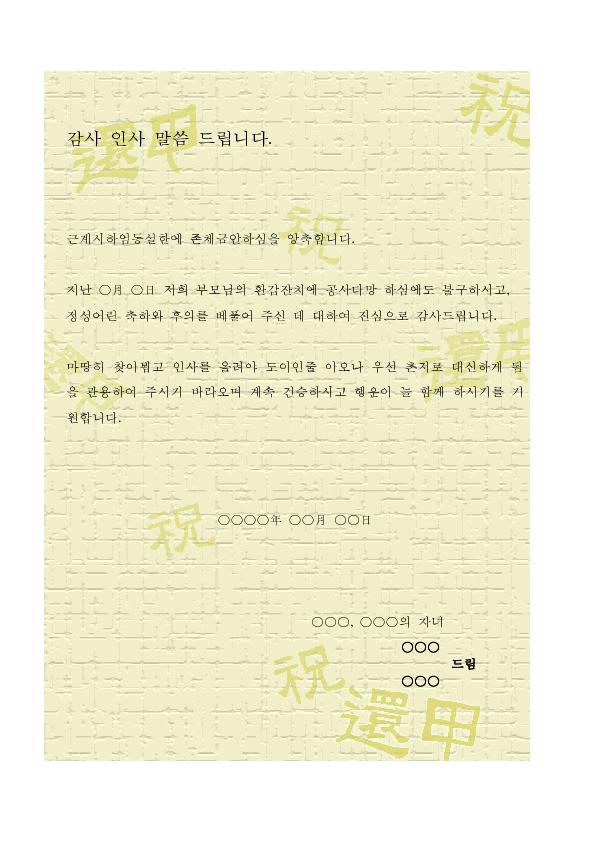 감사 인사 말씀 드립니다.
근계시하엄동설한에 존체금안하심을 앙축합니다.
지난 ○月 ○日 저희 부모님의 환갑잔치에 공사다망 하심에도 불구하시고,
정성어린 축하와 후의를 베풀어 주신 데 대하여 진심으로 감사드립니다.
마땅히 찾아뵙고 인사를 올려야 도이인줄 아오나 우선 촌지로 대신하게 됨
을 관용하여 주시기 바라오며 계속 건승하시고 행운이 늘 함께 하시기를 기
원합니다.
○○○○年 ○○月 ○○日
○○○, ○○○의 자녀
○○○
드림
○○○
祝
還甲
祝
還甲
還
祝
祝
還甲